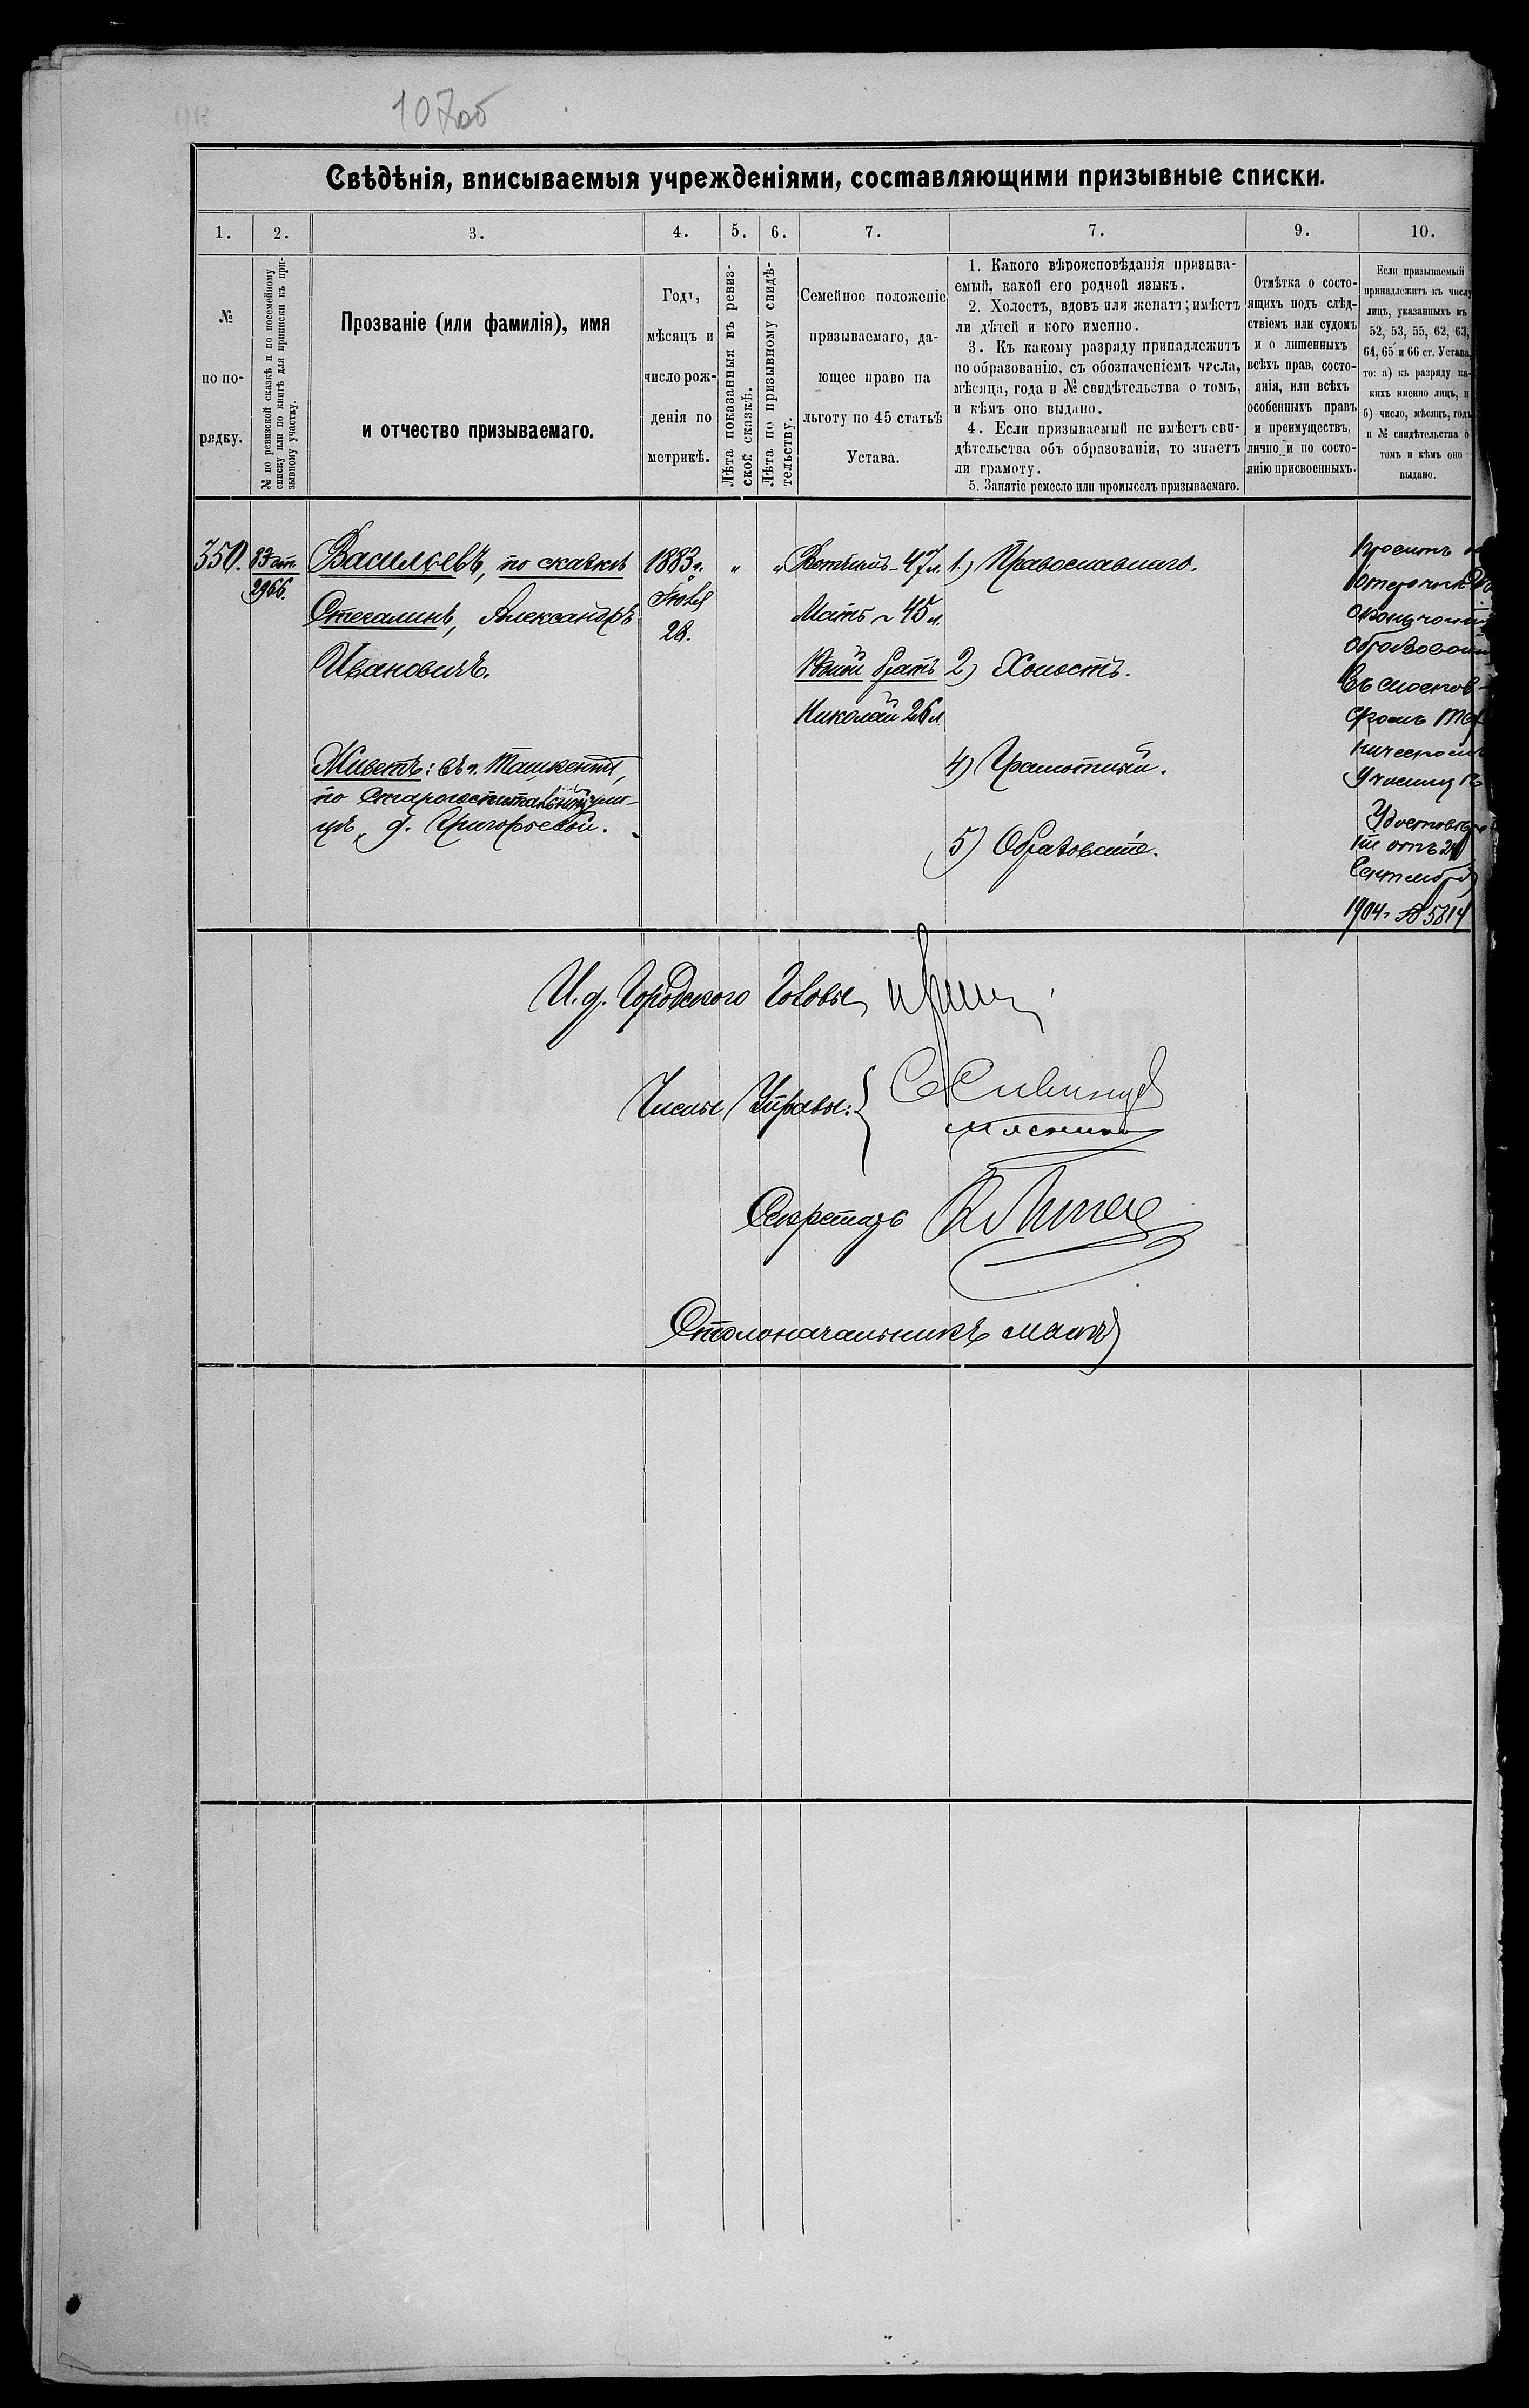 107об
Свѣдѣнія, вписываемыя учрежденіями, составляющими призывные списки.
1.
2.
3.
4.
5.
6.
7.
7.
9.
10.
№
по по-
рядку.
№ по ревизской сказкѣ и по посемейному
списку или по книгѣ для приписки къ при-
зывному участку.
Прозваніе (или фамилія), имя
и отчество призываемаго.
Годъ,
мѣсяцъ и
число рож-
денія по
метрикѣ.
Лѣта показанныя въ ревиз-
ской сказкѣ.
Лѣта по призывному свидѣ-
тельству.
Семейное положеніе
призываемаго, да-
ющее право на
льготу по 45 статьѣ
Устава.
1. Какого вѣроисповѣданія призыва-
емый, какой его родной языкъ.
2. Холостъ, вдовъ или женатъ; имѣетъ
ли дѣтей и кого именно.
3. Къ какому разряду принадлежитъ
по образованію, съ обозначеніемъ числа,
мѣсяца, года и № свидѣтельства о томъ,
и кѣмъ оно выдано.
4. Если призываемый не имѣетъ сви-
дѣтельства объ образованіи, то знаетъ
ли грамоту.
5. Занятіе ремесло или промыселъ призываемаго.
Отмѣтка о состо-
ящихъ подъ слѣд-
ствіемъ или судомъ
и о лишенныхъ
всѣхъ прав, состо-
янія, или всѣхъ
особенныхъ правъ
и преимуществъ,
лично и по состо-
янію присвоенныхъ.
Если призываемый
принадлежитъ къ числу
лицъ, указанныхъ въ
52, 53, 55, 62, 63,
64, 65 и 66 ст. Устава,
то: а) къ разряду ка-
кихъ именно лицъ, и
б) число, мѣсяцъ, годъ
и № свидѣтельства о
томъ и кѣмъ оно
выдано.
350.
2966.
Васильевъ, по сказкѣ
Стегалинъ, Александръ
Ивановичъ.
Живетъ: въ г. Ташкентѣ,
по Старогоспитальной ули-
цѣ, д. Григорьевой.
1883 г.
Іюля
28.
"
"
Вотчимъ - 47 л.
Мать - 45 л.
Родной братъ
Николай 26 л.
1.) Православнаго.
2) Холостъ.
4) Грамотный.
5) Образованіе.
Проситъ
отсрочки
окончанія
образованія
въ Москов-
скомъ Тех-
ническомъ
Училищѣ
Удостовѣре-
ніе отъ 24
Сентября
1904 г. № 5814
И. д. Городского Головы
Члены Управы:
Секретарь
Столоначальникъ